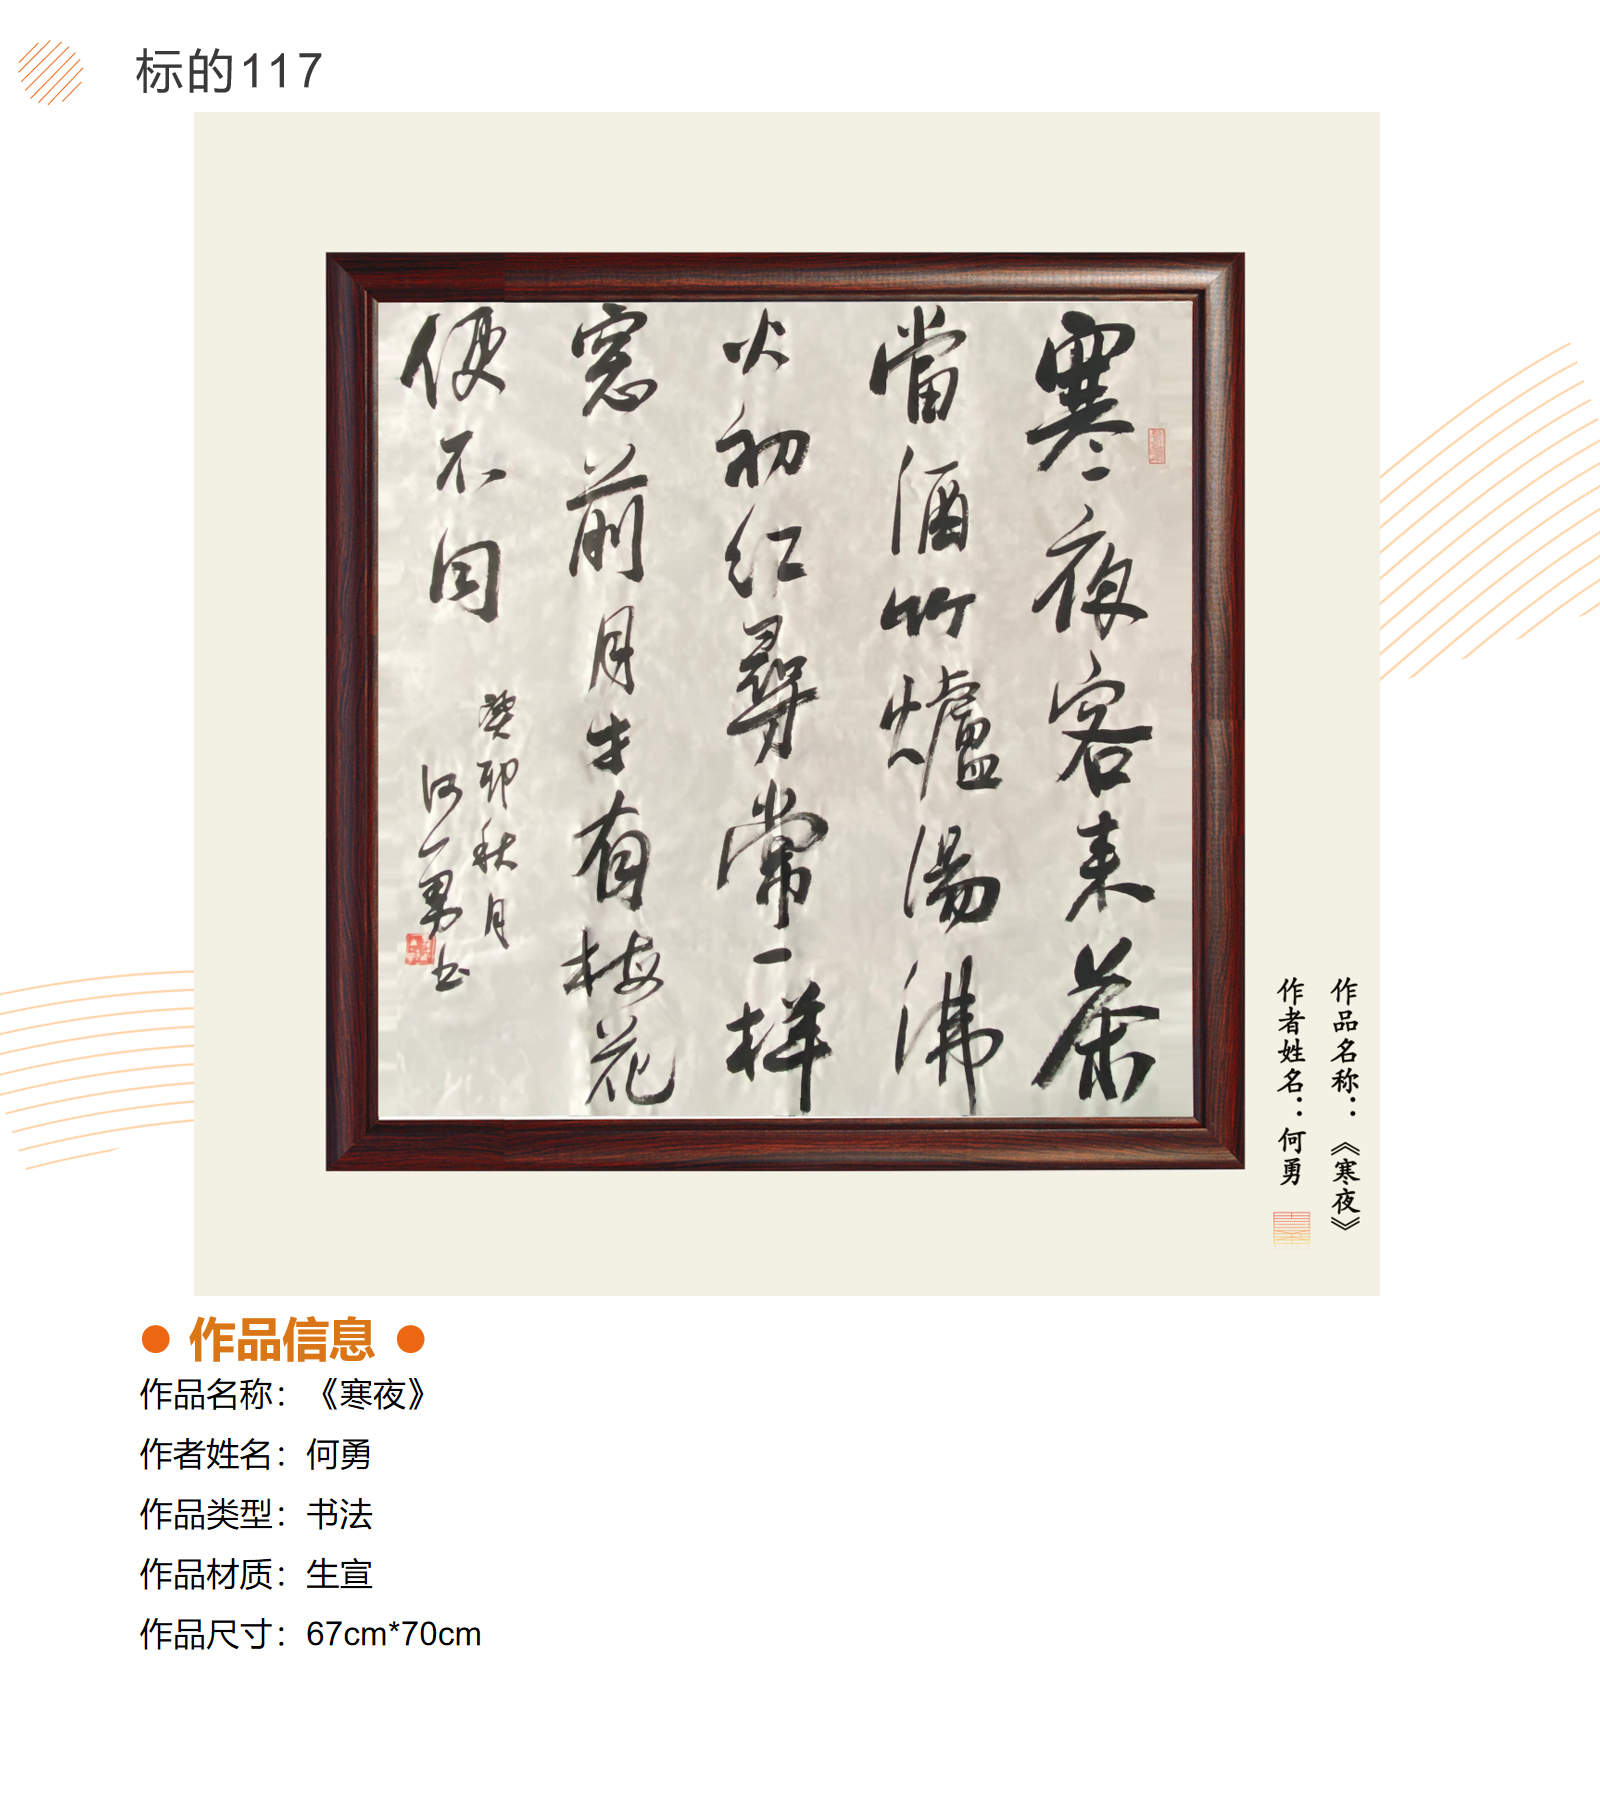 标的117
寒夜客来茶
當酒竹爐湯沸
火初红尋常一样
窓前月才有梅花
便不同
癸卯秋月
何勇书
作品名称：《寒夜》
作者姓名：何勇
作品信息
作品名称：《寒夜》
作者姓名：何勇
作品类型：书法
作品材质：生宣
作品尺寸：67cm*70cm